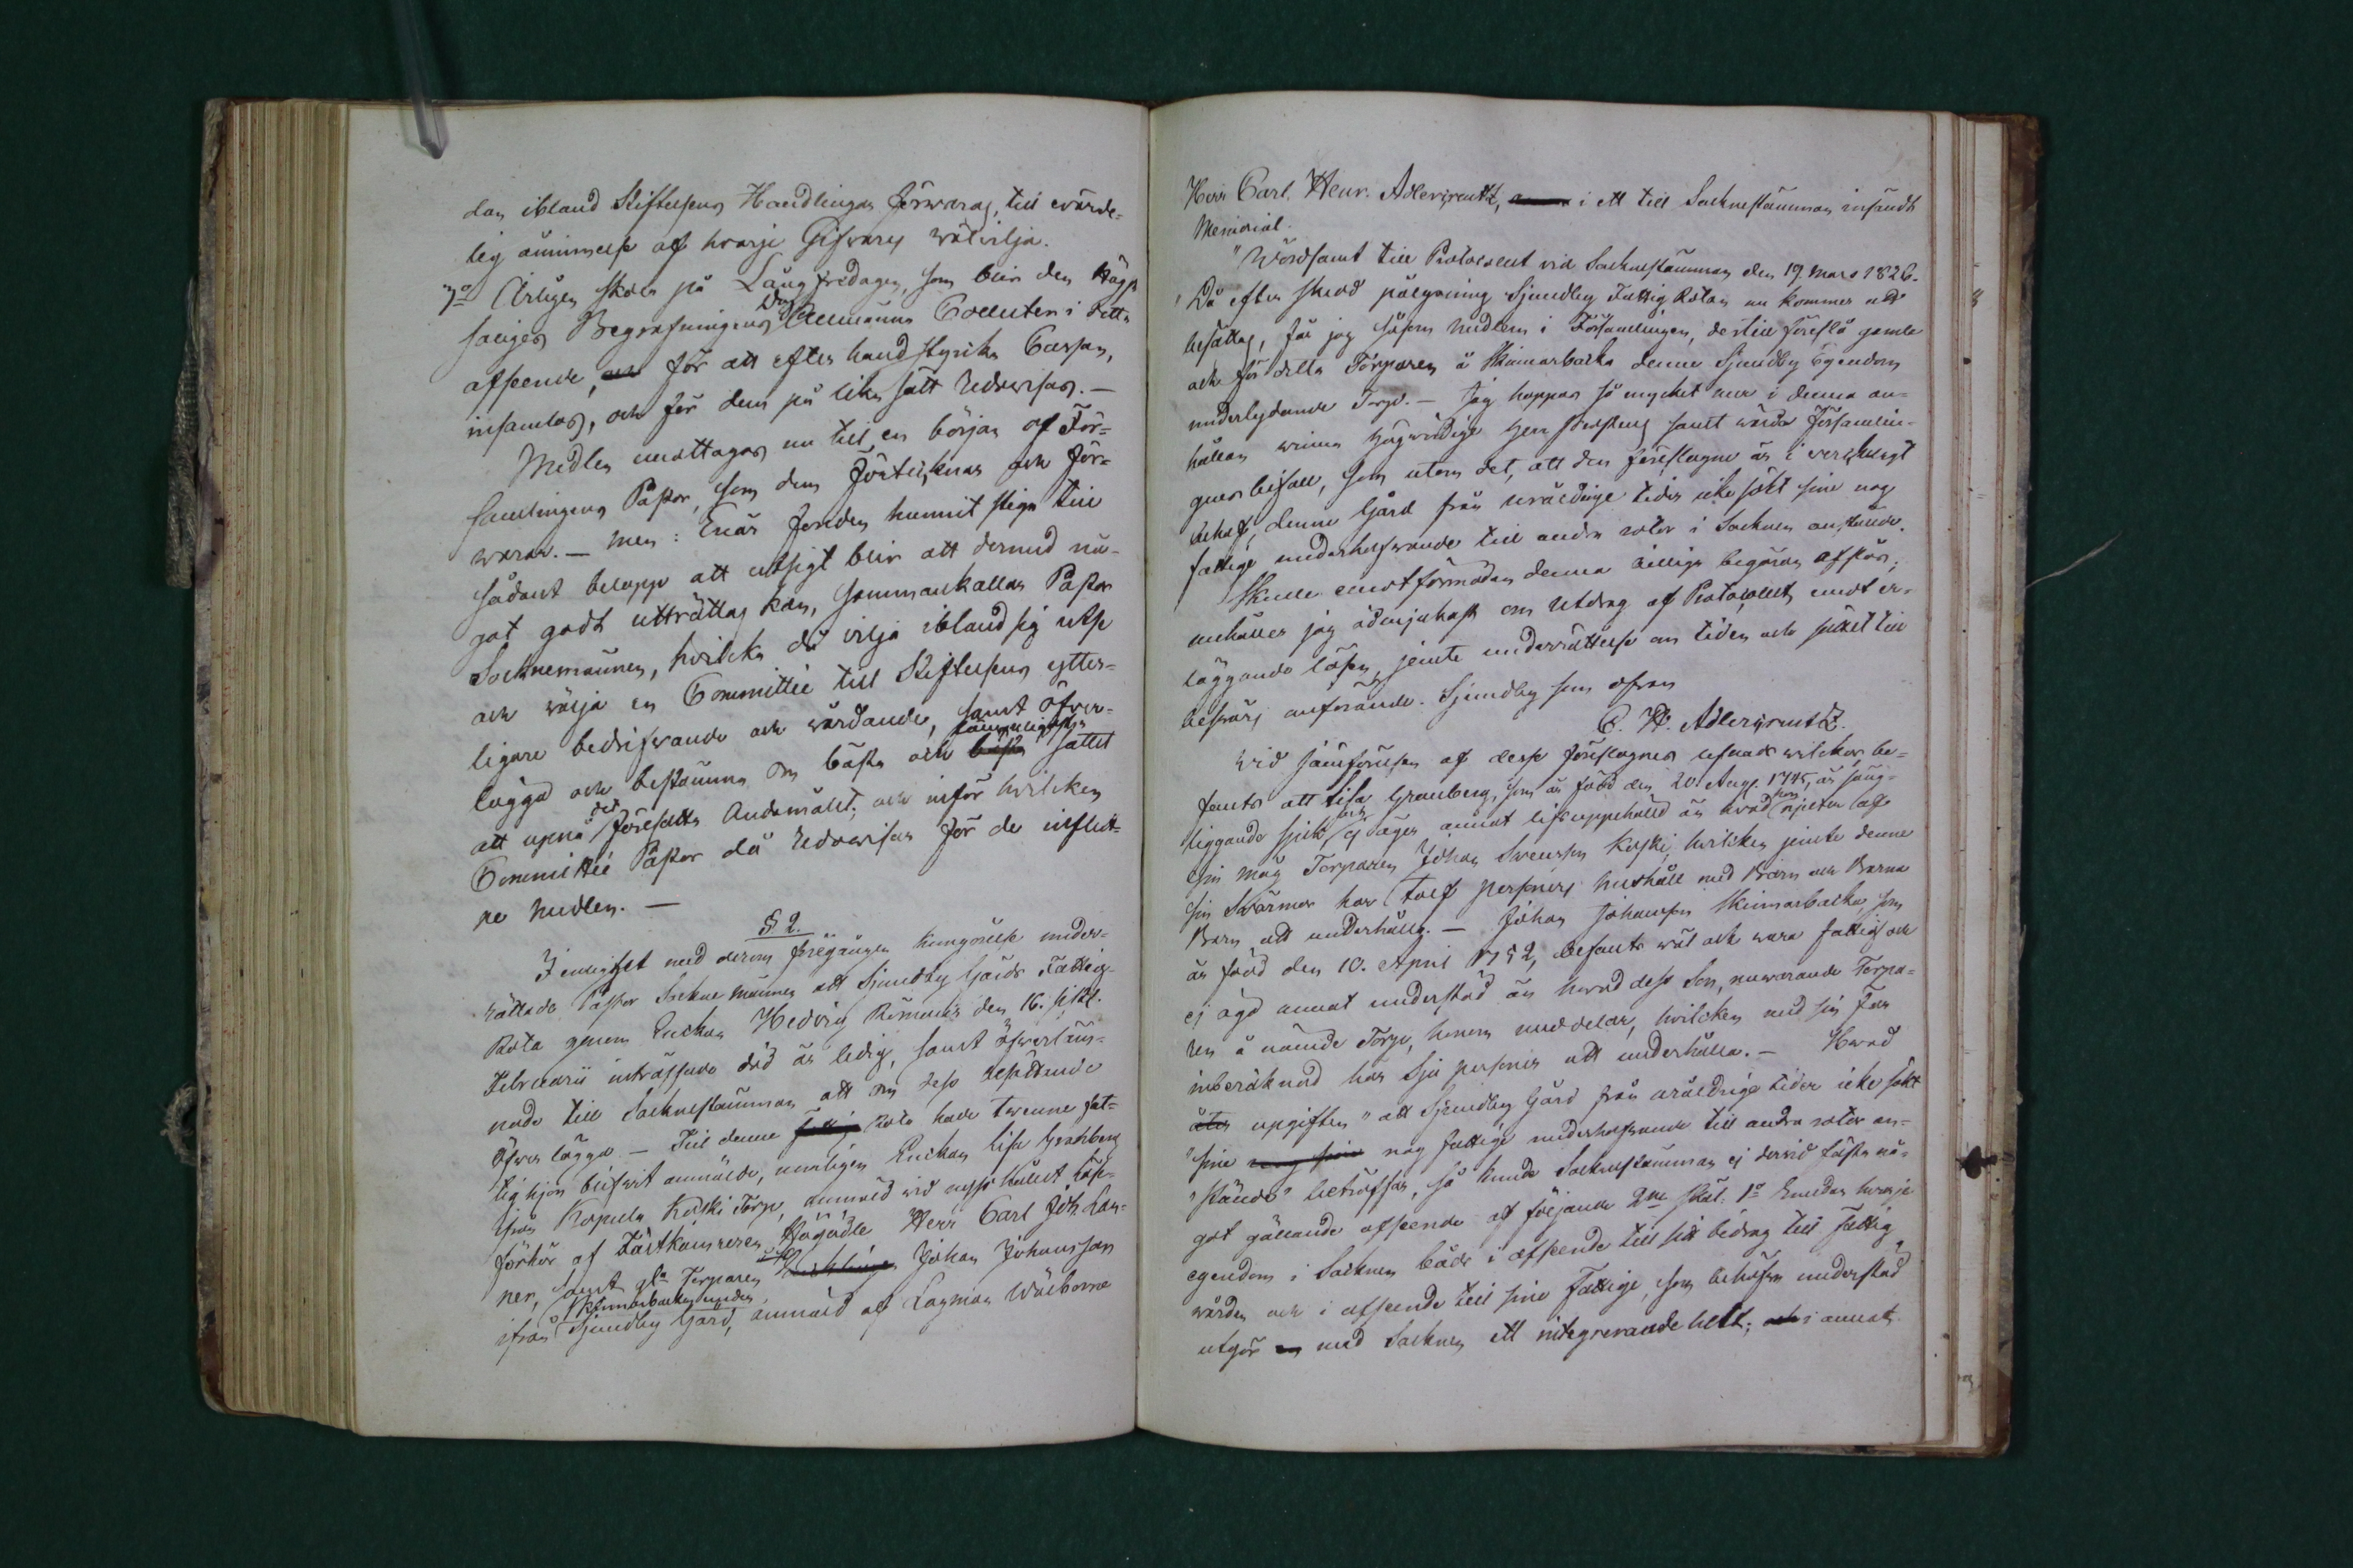 dan ibland Stiftelsens Handlingar förwaras, till ewärde-
lig åminnelse af hvarje Gifvares wälvilja.
7o Årligen skola på Långfredagen, som blir den Högst
saliges Begrafningens Dag Allmänna Collecten i detta
afseende, och för att efter hand styrka Cassan,
insamlas, och för dem på lika sätt redowisas. —
Medlen emottagas nu till en början af För-
samlingens Pastor, som dem förtecknar och för-
warar. — Men: Enär fonden hunnit stiga till
sådant belopp att utsigt blir att dermed nå-
got godt uträttas kan, sammankallar Pastor
Socknemännen, hvilka då vilja ibland sig utse
och wälja en Committée till Stiftelsens ytter-
ligare bedrifwande och wårdande, samt öfver-
lägga och bestämma om bästa och bästa lämpeligaste sättet
att upnå det föresatta Ändamålet; och inför hvilken
Committée Pastor då redowisar för de influt-
ne medlen. —
§ 2.
I enlighet med derom föregången kungörelse under-
rättade Pastor Sockne männen att Sjundby Gårds Fattig-
Rota genom Enkan Hedvig Römans den 16. sistl.
Februarii inträffade död är ledig, samt öfverläm-
nade till Sockenstämman att om dess besättande
öfver lägga. — Till denne fattig Rota hade twenne fat-
tighjon blifwit anmälde, nemligen Enkan Lisa Granberg
ifrån Kopula Koski Torp, anmäld vid nyss hållet Läse-
förhör af Läntkamreren Högädle Herr Carl Joh. Lan-
ner, samt f.d. Torparen Johan Johansson
ifrån Skinnarbacka under Sjundby Gård, anmäld af Lagman Wälborne
Herr Carl Henr. Adlercreutz, i ett till Sockenstämman insändt
Memorial.
"Wördsamt till Protocollet vid Sockenstämman den 19. Mars 1826.
"Då efter skedd pålysning Sjundby Fattig Rotan nu kommer att
besättas, får jag såsom medlem i Församlingen, dertill föreslå gamla
och för detta Torparen å Skinnarbacka denne Sjundby Egendom
underlydande Torp. — Jag hoppas så mycket mer i denna an-
hållan winna Högwördige Herr Prostens samt wärda Församlin-
gens bifall, som utom det, att den föreslagne är i verkeligt
behof, denne Gård från uråldrige tider icke sökt sine nog
fattige underhafwande till andra rotor i Socknen anstånde.
Skulle emot förmodan denna billiga begäran afslås;
anhåller jag ödmjukast om Utdrag af Protocollet, emot er-
läggande lösen, jemte underrättelse om tiden och sättet till
beswärs anförande. Sjundby som ofvan
C. H. Adlercreutz.
Wid jämförelsen af desse föreslagnes lefnads wilckor be-
fants att Lisa Granberg, som är född den 20. Aug. 1745, är säng-
liggande sjuk, och ej äger annat lifsuppehälld än hvad hon njuter af
sin måg Torparen Johan Swensson Koski, hvilcken jemte denne
sin Swärmor har tolf personers hushåll med Barn och Barna
Barn att underhålla. — Johan Johansson Skinnarbacka, som
är född den 10. April 1752, befants wäl och wara fattig och
ej äga annat understöd än hvad dess Son, nuwarande Torpa-
ren å nämde Torp, honom meddelar, hvilcken med sin Far
inberäknad har Sju personer att underhålla. — Hwad
åter upgiften "att Sjundby Gård från uråldrige tider icke sökt
"sine nog fattige underhafwande till andra rotor an-
"stånde" beträffar, så kunde Sockenstämman ej dervid fästa nå-
got gällande afseende af följande 2ne skäl: 1o Emedan hvarje
egendom i Socknen både i afseende till sitt bidrag till fattig
wården och i afseende till sine Fattige, som behöfva understöd
utgör med Socknen ett integrerande helt; i annat